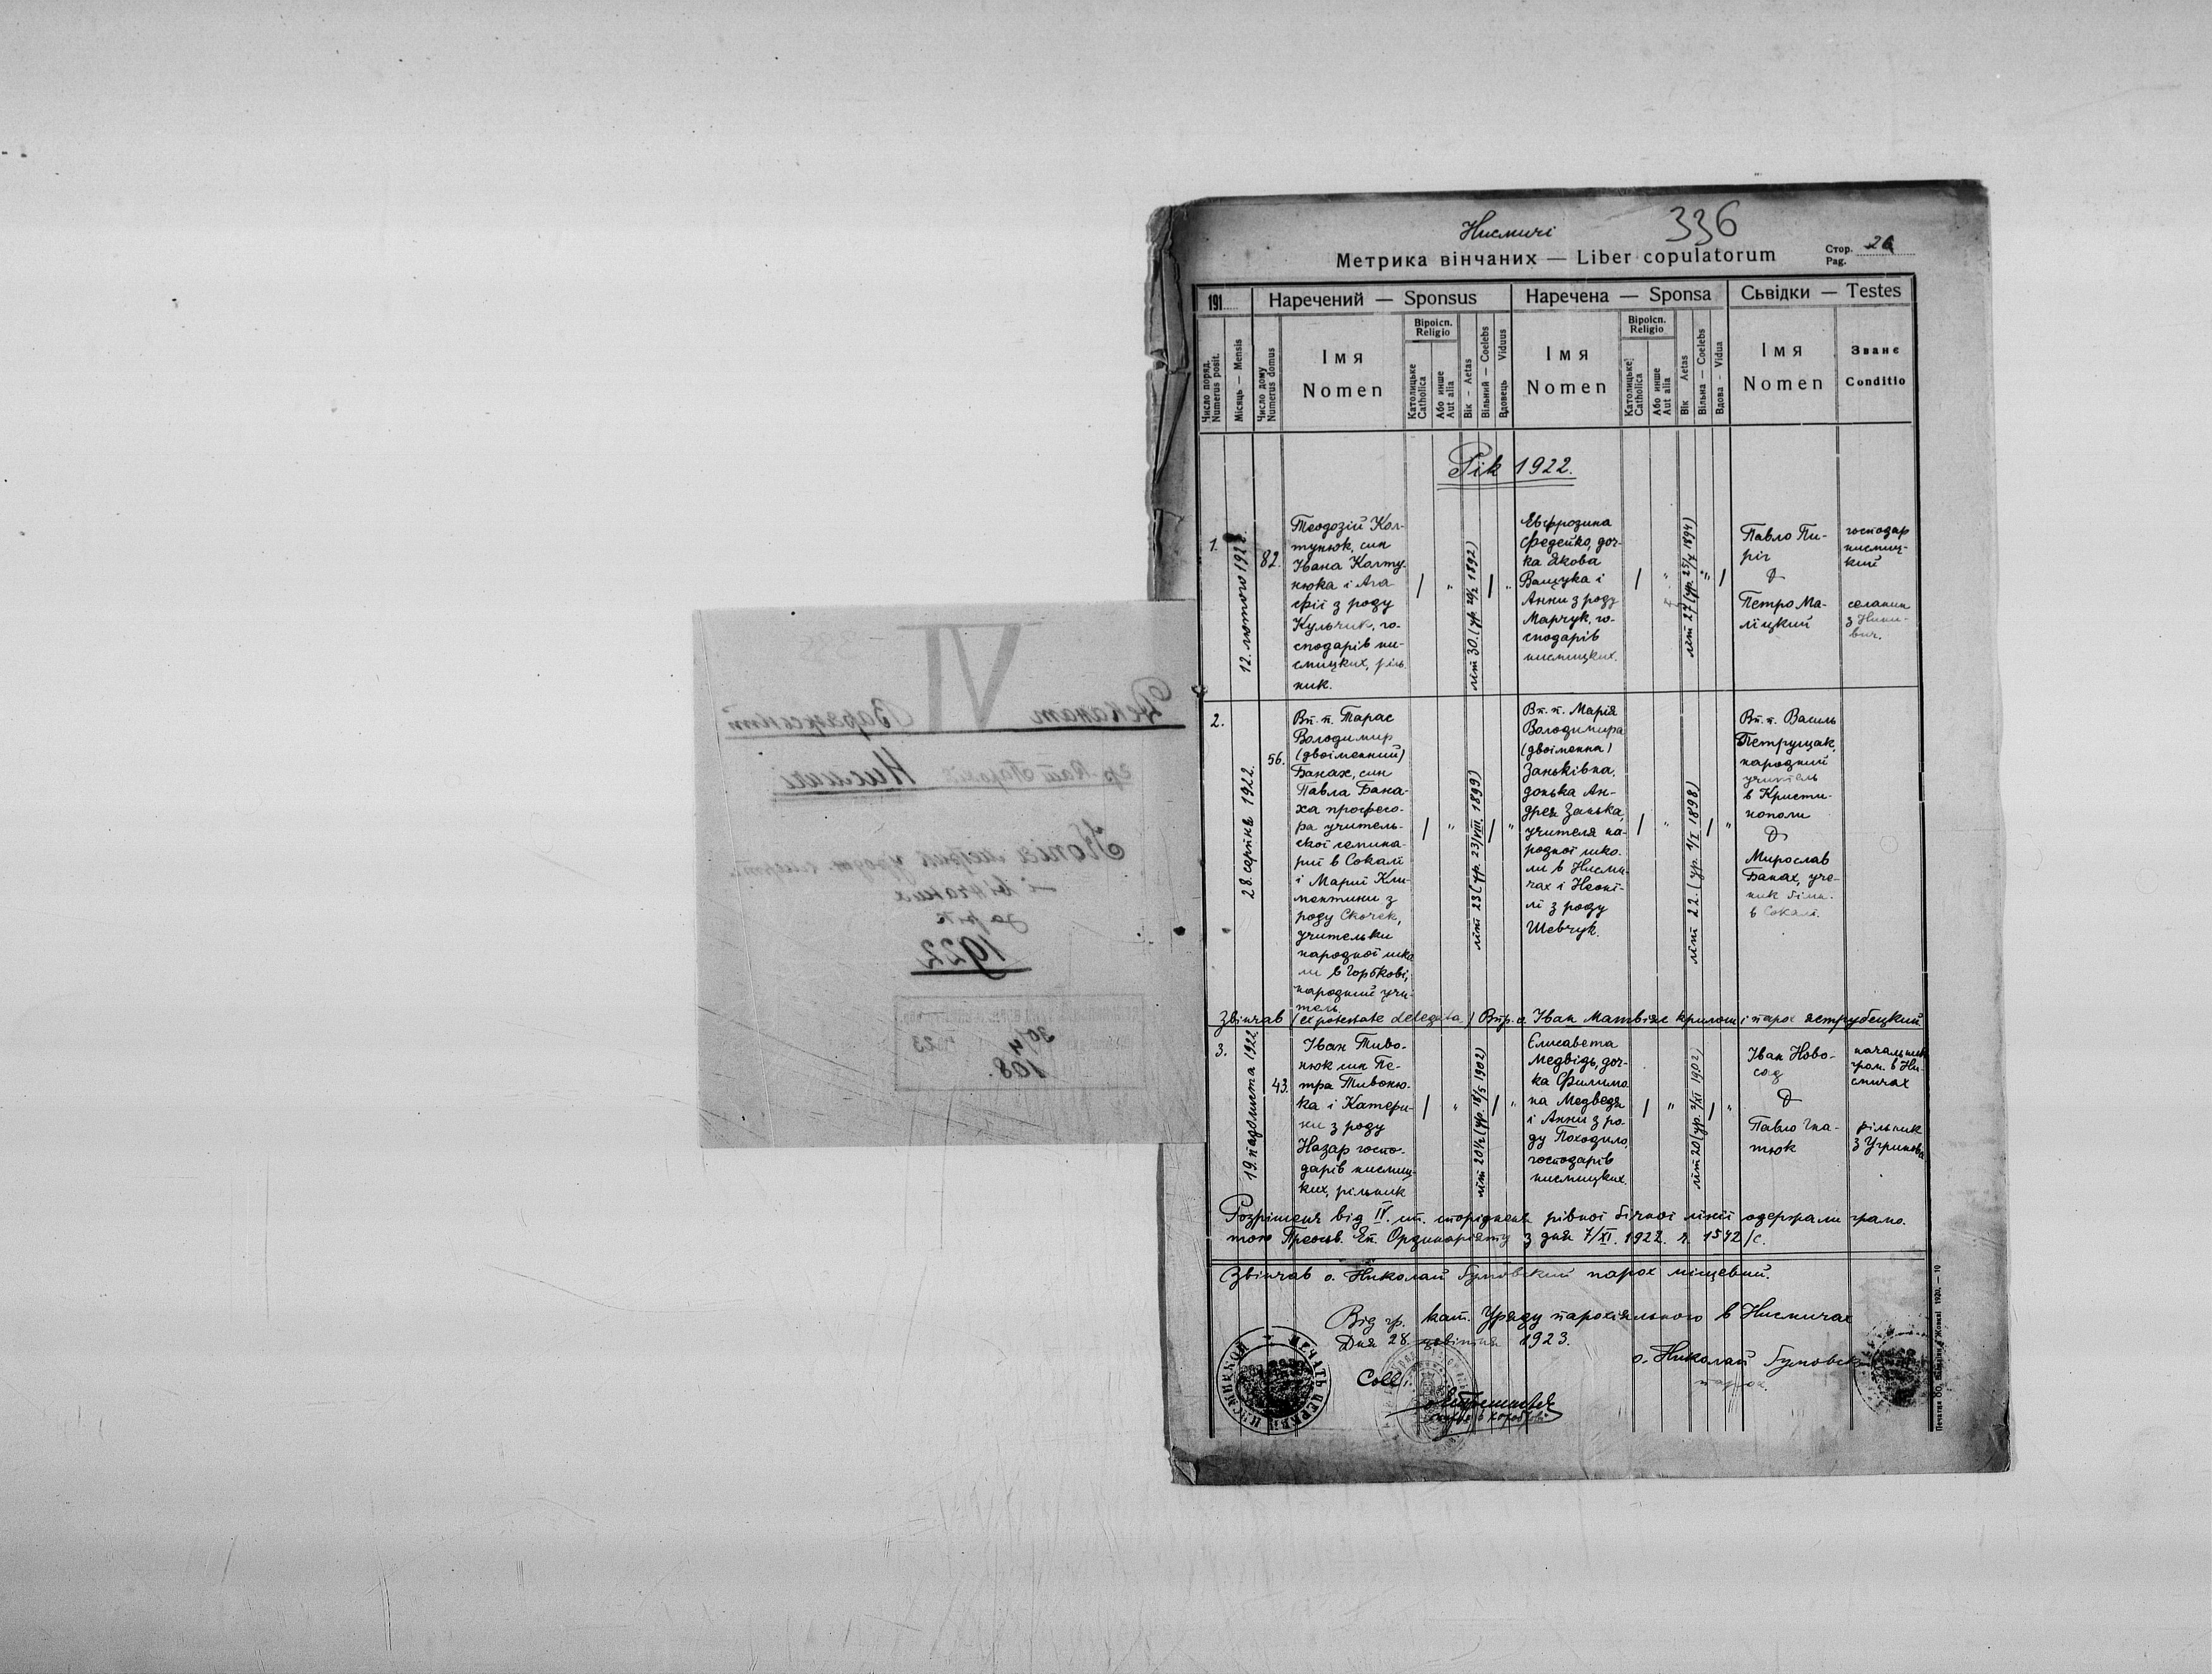 VI
Деканат Варяжський
гр. кат. Парохія Нисмичі
Копія метрик урод. смерт.
і вінчаних
за рік
1922
30/4 23
108.
Нисмичі
336
Метрика вінчаних — Liber copulatorum
Стор.
Pag.
191
Наречений — Sponsus
Наречена — Sponsa
Сьвідки — Testes
Число поряд.
Numerus posit.
Місяць — Mensis
Число дому
Numerus domus
Імя
Nomen
Віроісп.
Religio
Католицьке
Catholica
Або инше
Aut alia
Вік — Aetas
Вільний — Coelebs
Вдовець Viduus
Імя
Nomen
Віроісп.
Religio
Католицьке
Catholica
Або инше
Aut alia
Вік Aetas
Вільна — Coelebs
Вдова - Vidua
Імя
Nomen
Званє
Conditio
Рік 1922.
1.
12. лютого 1922.
82.
Теодозій Кол-
тунюк, син
Івана Колту-
нюка і Ага-
фії з роду
Кульчик, го-
сподарів ни-
смицких, ріль-
ник.
літ 30. (ур. 20/2 1892)
Евфрозина
Федейко, доч-
ка Якова
Ващука і
Анни з роду
Марчук, го-
сподарів
нисмицких.
літ 27 (ур. 25/X 1894)
Павло Пи-
ріг
Петро Ма-
ліцкий
господар
нисмиц-
кий
селянин
2.
28. серпня 1922.
56.
Вп. п. Тарас
Володимир
(двоіменний)
Банах, син
Павла Бана-
ха професо-
ра учитель-
скої семина-
рії в Сокали
і Марії Кли-
ментини з
роду Скочек,
учительки
народної шко-
ли в Горбкові,
народний учи-
тель.
літ 23 (ур. 23/VIII. 1899)
Вп. п. Марія
Володимира
(двоіменна)
Заньківна,
донька Ан-
дрея Занька,
учителя на-
родної шко-
ли в Нисми-
чах і Неоні-
лі з роду
Шевчук.
літ 22. (ур. 1/I 1898)
Вп. п. Василь
Петрущак,
народний
учитель
в Кристи-
нополи
Мирослав
Банах, уче-
ник гімн.
в Сокали.
Звінчав (ex potestate delegata) Впр. о. Іван Матвіяс крилош. і парох яструбецкий
3.
19. падолиста 1922
43.
Іван Тиво-
нюк син Пе-
тра Тивоню-
ка і Катери-
ни з роду
Назар госпо-
дарів нисмиц-
ких, рільник
літ 20½ (ур. 18/5 1902)
Єлисавета
Медвідь, доч-
ка Филимо-
на Медведя
і Анни з ро-
ду Походило,
господарів
нисмицких.
літ 20 (ур. 2/XI 1902)
Іван Ново-
сад
Павло Гна-
тюк
начальник
гром. в Ни-
смичах
рільник
з Угринова
Розрішенє від IV. ст. спорідненя рівної бічної лінії одержали грамо-
тою Преосв. Еп. Ординаріяту з дня 7/XI. 1922. ч. 1542/с.
Звінчав о. Николай парох місцевий.
Від гр. кат. Уряду парохіяльного в Нисмичах
Дня 28. цвітня 1923.
о. Николай
парох.
Coll.
ПЕЧАТЬ ЦЕРКВИ